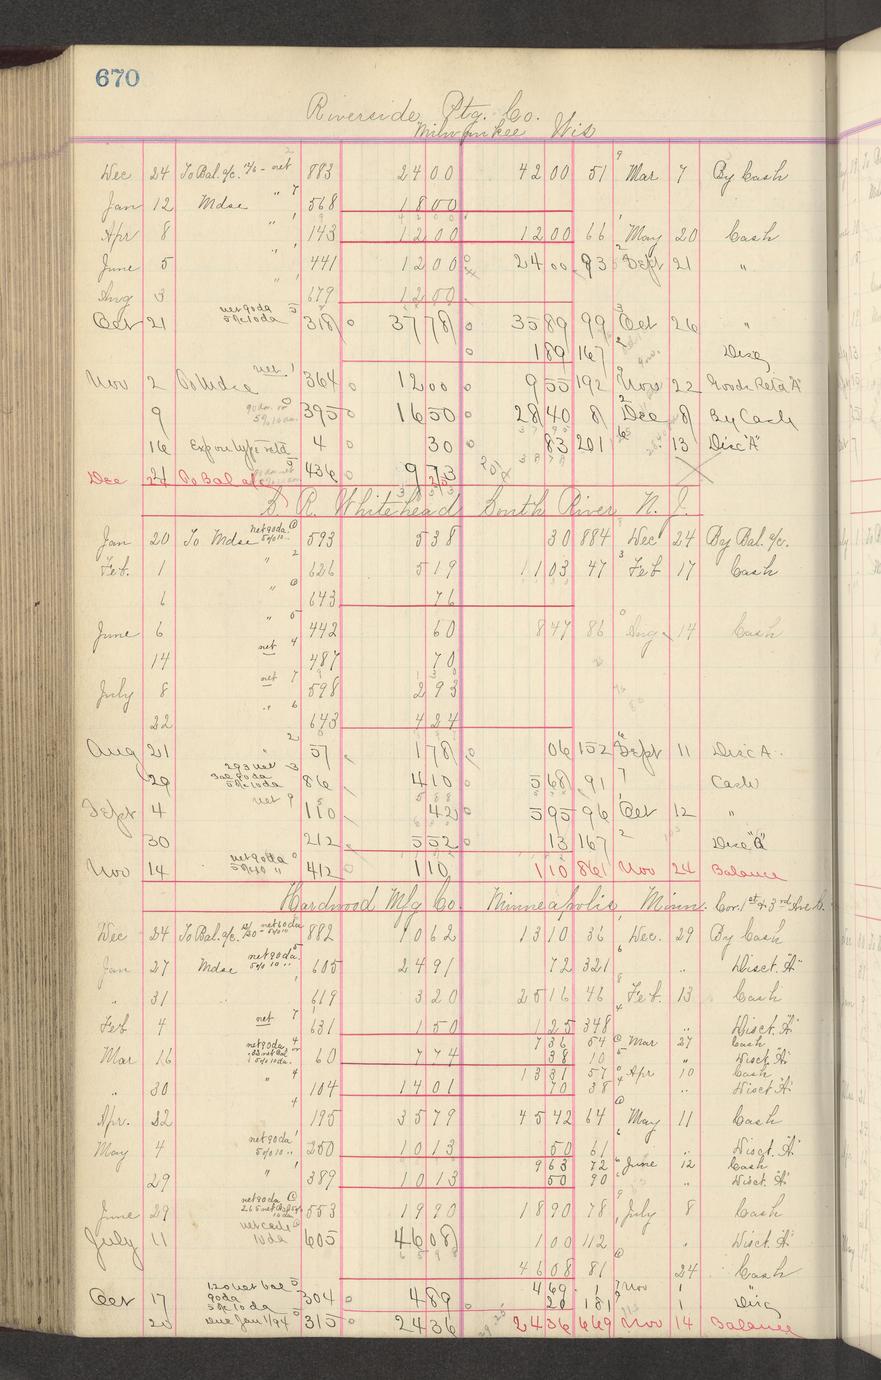 670
Riverside Ptg. Co.
Milwaukee Wis
Dec 24 To Bal. a/c. net 883 2400 4200 51 Mar 7 By Cash
Jan 12 Mdse " 568 1800
Apr 8 " 143 1200 1200 66 May 20 Cash
June 5 " 441 1200 2400 93 Sept 21 "
Aug 3 " 679 1200
Oct 21 net 90 da 5% 10 da 318 3778 3589 99 Oct 26 "
189 167 Disc
Nov 2 To Mdse net 364 1200 955 192 Nov 22 Goods Retd "A"
9 395 1650 2840 8 Dec 8 By Cash
16 Exp on type retd 4 30 83 201 13 Disc "A"
436 973
Dec 24 To Bal a/c
R. Whitehead South River N. J.
Jan 20 To Mdse net 90 da. 5% 10 593 538 30 884 Dec 24 By Bal. a/c.
Feb. 1 " 626 519 1103 47 Feb 17 Cash
6 " 643 76
June 6 442 60 847 86 Aug 14 Cash
14 net 487 70
July 8 net 598 293
22 " 643 424
Aug 21 " 57 178 06 152 Sept 11 Disc A
29 293 net Bal 90 da 5% 10 da 86 410 568 91 Cash
Sept 4 net 110 42 595 96 Oct 12 "
30 212 552 13 167 Disc "A"
Nov 14 net 90 da 5% 10 " 412 110 110 861 Nov 24 Balance
Hardwood Mfg Co. Minneapolis Minn. Cor. 1st & 3rd Ave
Dec 24 To Bal. a/c. net 60 da 5% 10 " 882 1062 1310 36 Dec. 29 By Cash
Jan 27 Mdse net 90 da. 5% 10 " 605 2491 72 321 " Disct. "A"
" 31 619 320 2516 46 Feb. 13 Cash
Feb 4 net 631 150 125 348 " Disct. "A"
736 54 Mar 27 Cash
Mar 16 net 90 da 5% 10 da. 60 774 38 10 " Disct "A"
1331 57 Apr 10 Cash
" 30 " 104 1401 70 38 " Disct "A"
Apr. 22 195 3579 4542 64 May 11 Cash
May 4 net 90 da 5% 10 " 250 1013 50 61 " Disct. "A"
963 72 June 12 Cash
29 " 389 1013 50 90 " Disct. "A"
June 29 net 90 da 265 net Bal 10 da 553 1990 1890 78 July 8 Cash
July 11 net cash 10 da 605 4608 100 112 " Disct. "A"
4608 81 24 Cash
469 1 Nov 1 "
Oct 17 120 net bal 90 da 5% 10 da 304 489 20 181 1 Disc
20 Due Jan 1/94 315 2436 2436 669 Nov 14 Balance